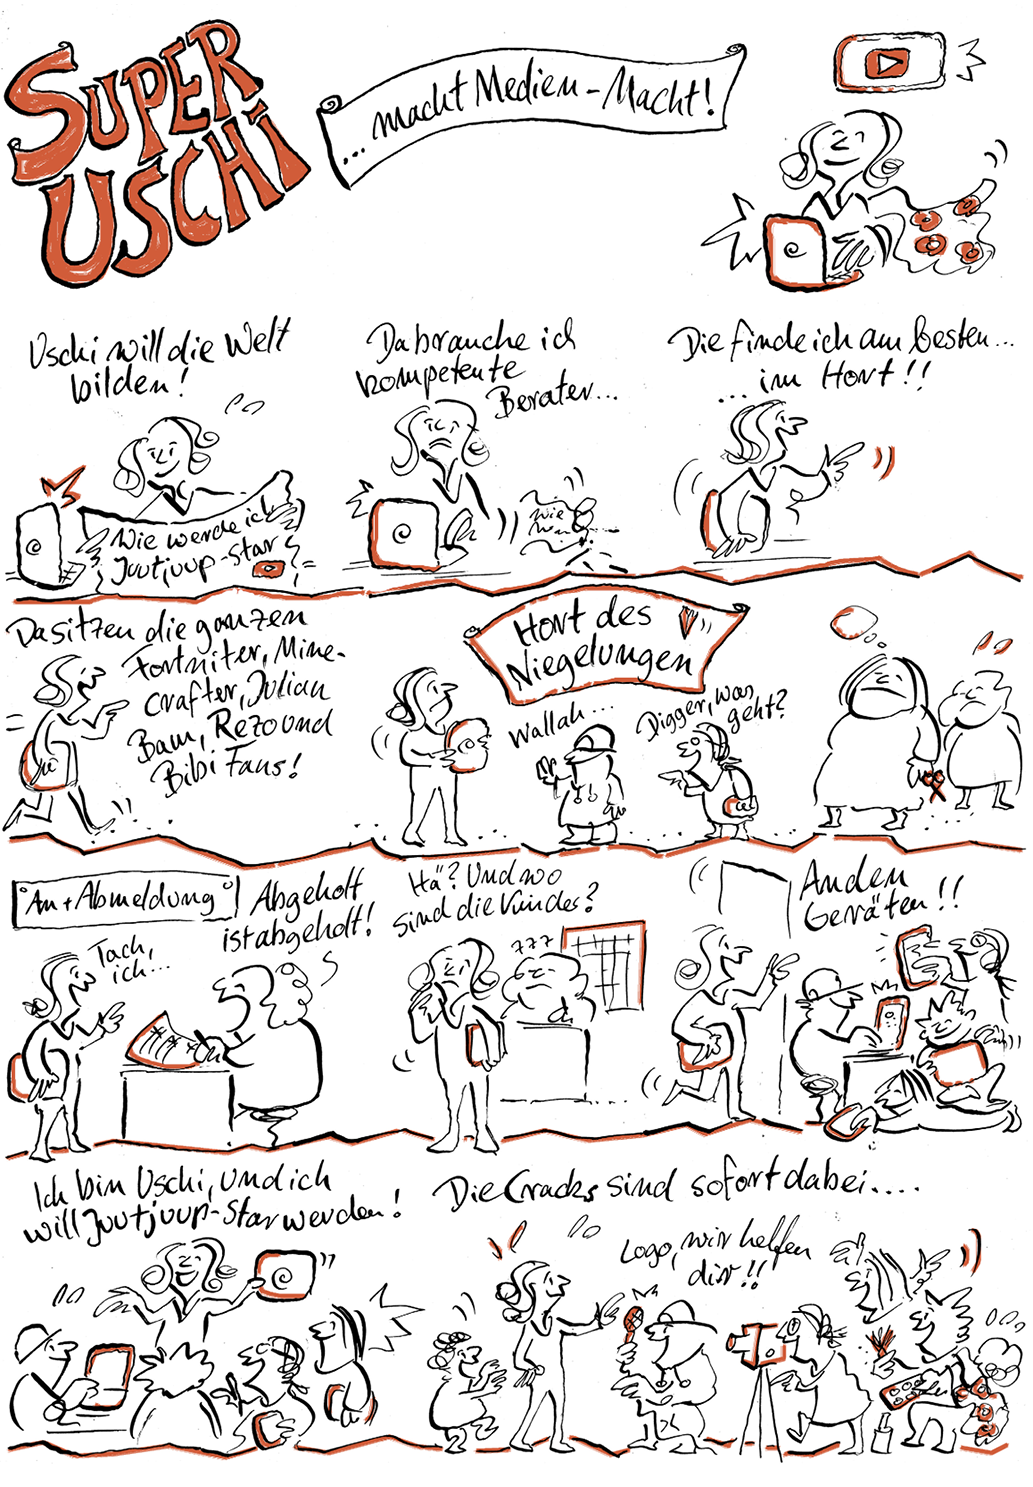 SUPER
USCHI
... macht Medien-Macht!
Uschi will die Welt
bilden!
Wie werde ich
Juutjuup-Star
Da brauche ich
kompetente
Berater...
Wie
Die finde ich am besten...
... im Hort!!
Da sitzen die ganzen
Fortniter, Mine-
crafter, Julian
Bam, Rezo und
Bibi Fans!
Hort des
Niegelungen
Wallah...
Digger, was
geht?
An + Abmeldung
Tach,
ich...
Abgeholt
ist abgeholt!
Hä? Und wo
sind die Kinder?
An den
Geräten!!
Ich bin Uschi, und ich
will Juutjuup-Star werden!
Die Cracks sind sofort dabei....
Logo, wir helfen
dir!!